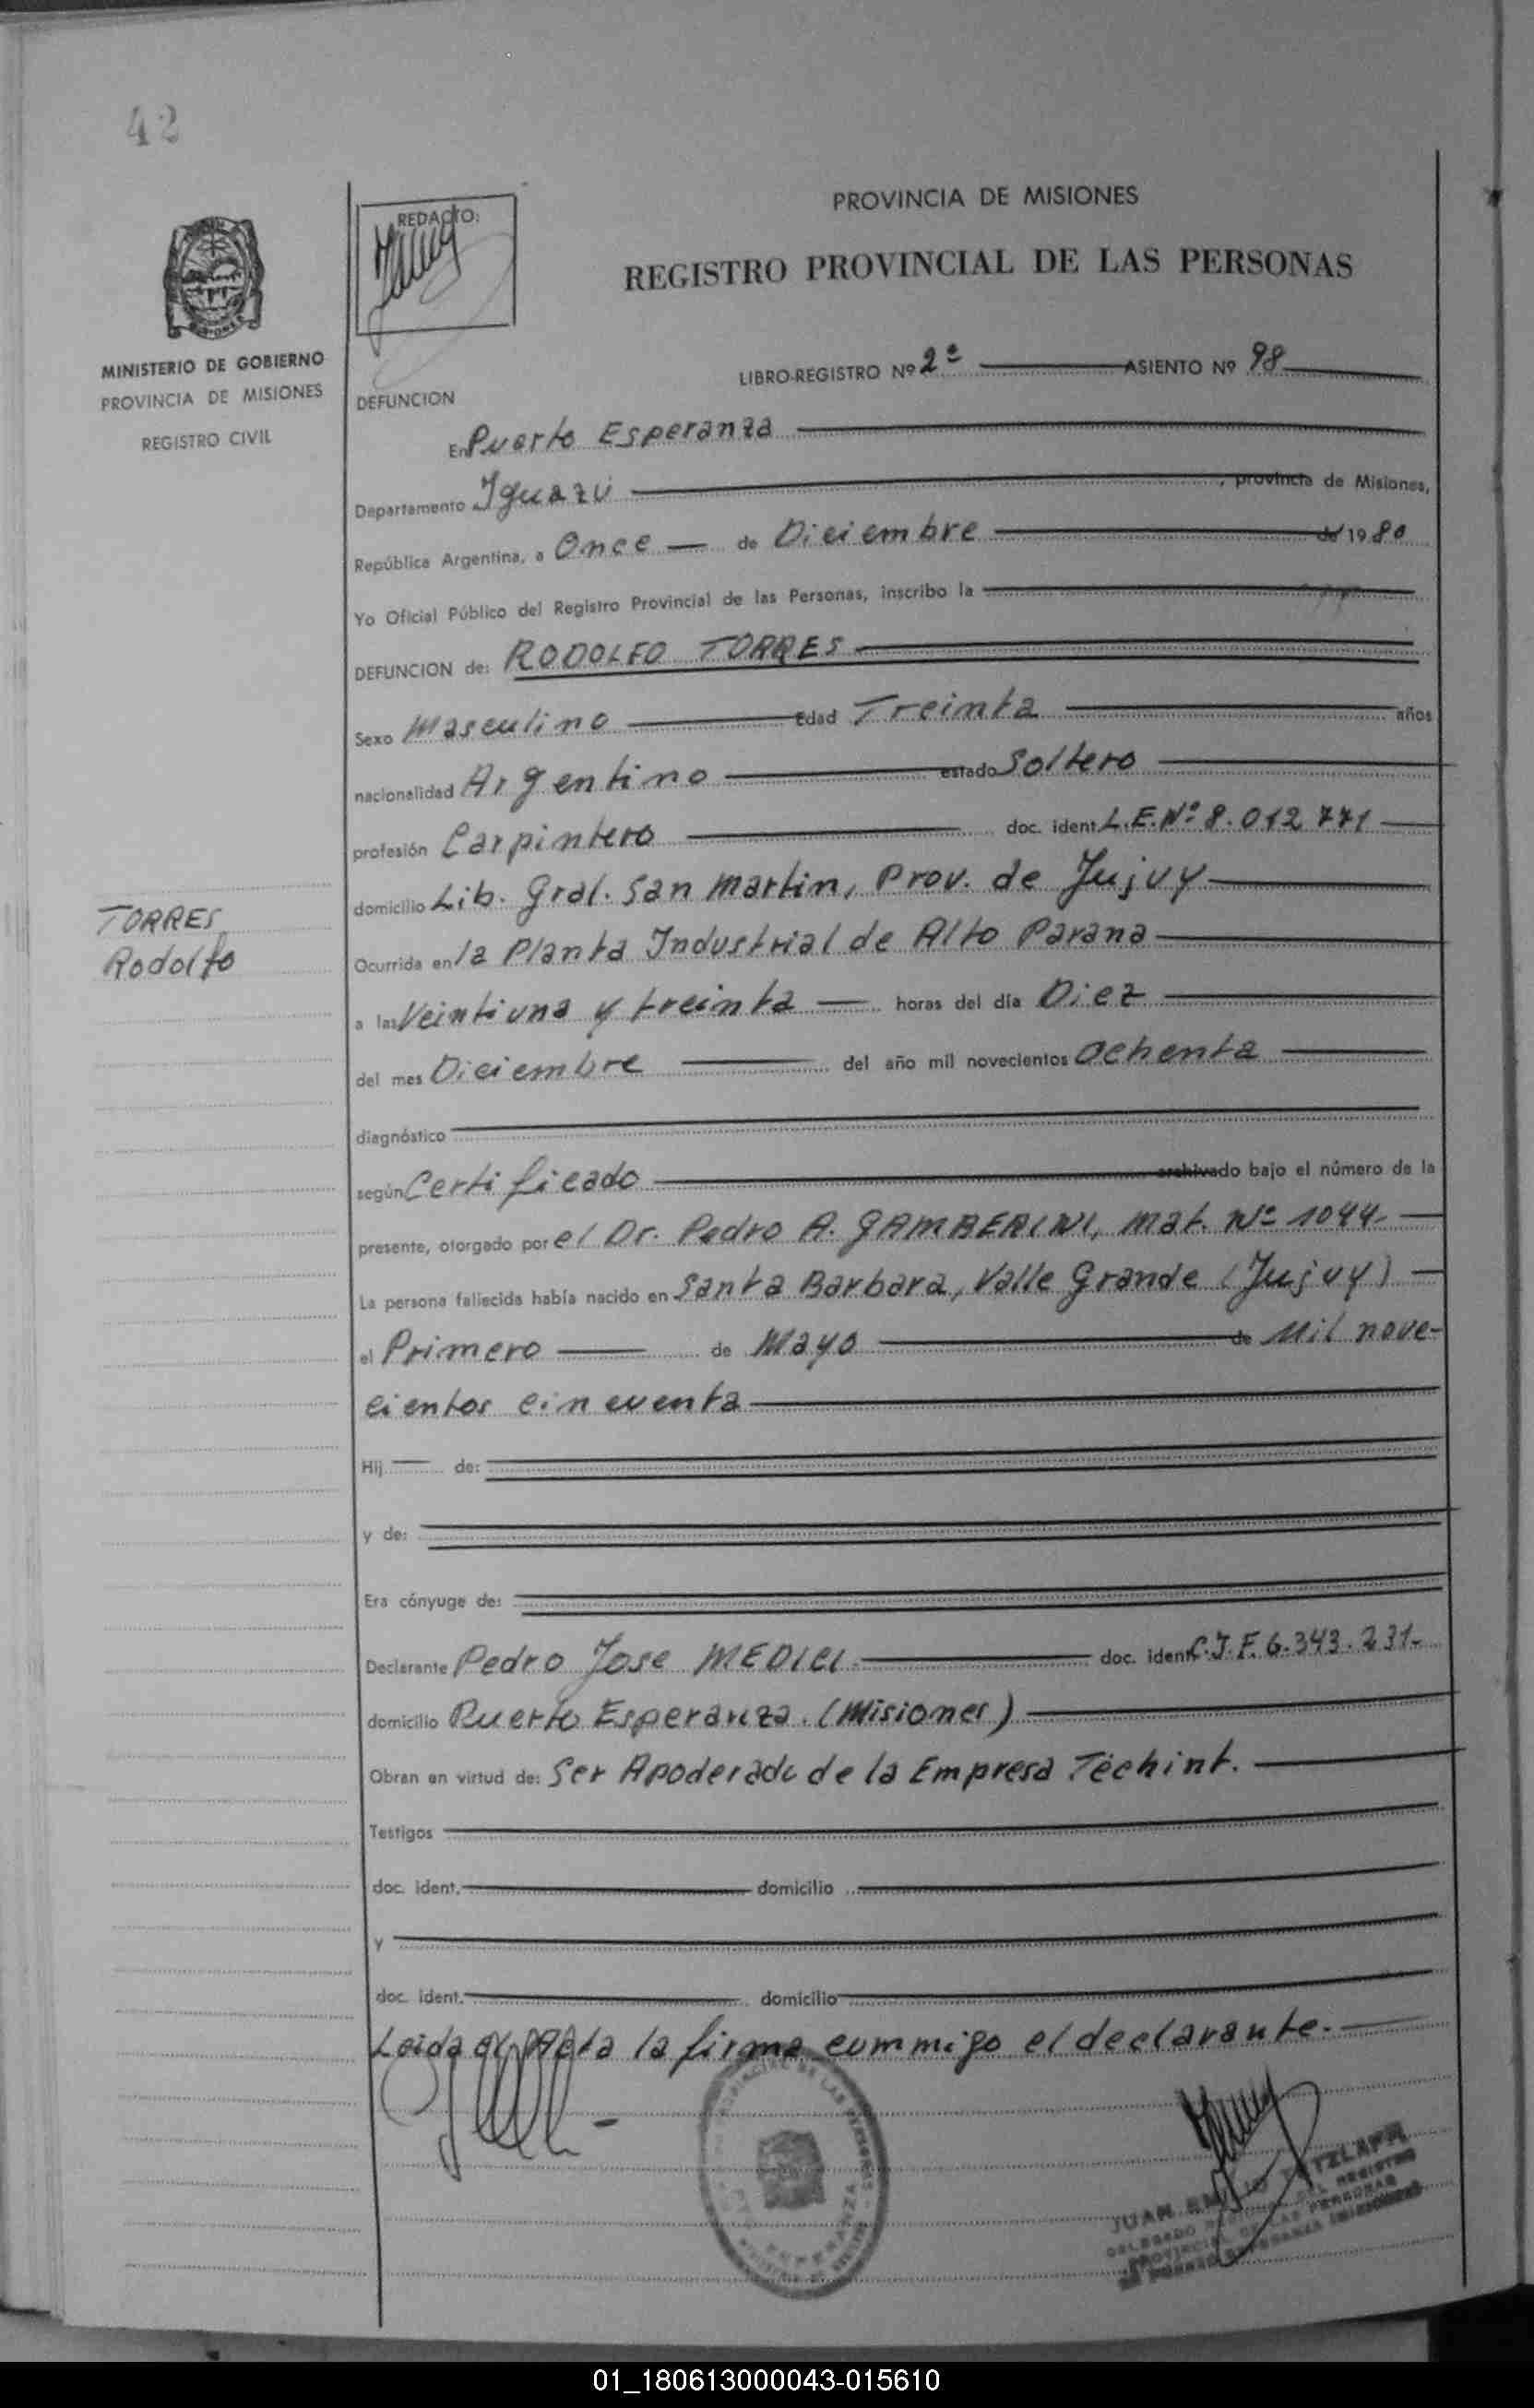 42
PROVINCIA DE MISIONES
REDACTO:
REGISTRO PROVINCIAL DE LAS PERSONAS
MINISTERIO DE GOBIERNO
PROVINCIA DE MISIONES
REGISTRO CIVIL
LIBRO-REGISTRO Nº 2º ASIENTO Nº 98
DEFUNCION
En Puerto Esperanza
Departamento Iguazú, provincia de Misiones,
República Argentina, a Once de Diciembre de 1980
Yo Oficial Público del Registro Provincial de las Personas, inscribo la
DEFUNCION de: RODOLFO TORRES
Sexo Masculino Edad Treinta años
nacionalidad Argentino estado Soltero
profesión Carpintero doc. ident. L.E.Nº 8.012 771
domicilio Lib. Gral. San Martin, Prov. de Jujuy
TORRES
Rodolfo
Ocurrida en la Planta Industrial de Alto Parana
a las Veintiuna y treinta horas del día Diez
del mes Diciembre del año mil novecientos Ochenta
diagnóstico
según Certificado archivado bajo el número de la
presente, otorgado por el Dr. Pedro A. GAMBERINI, Mat. Nº 1044.
La persona fallecida había nacido en Santa Barbara, Valle Grande (Jujuy)
el Primero de Mayo de Mil nove-
cientos cincuenta
Hij de:
y de:
Era cónyuge de:
Declarante Pedro Jose MEDICI. doc. ident. C.I.F. 6.343.231.
domicilio Puerto Esperanza. (Misiones)
Obran en virtud de: Ser Apoderado de la Empresa Techint.
Testigos
doc. ident. domicilio
y
doc. ident. domicilio
Leida el Acta la firma commigo el declarante.
PROVINCIAL DE LAS PERSONAS
ESPERANZA
JUAN EMILIO
DELEGADO DEL REGISTRO
PROVINCIAL DE LAS PERSONAS
PUERTO ESPERANZA (MISIONES)
01_180613000043-015610